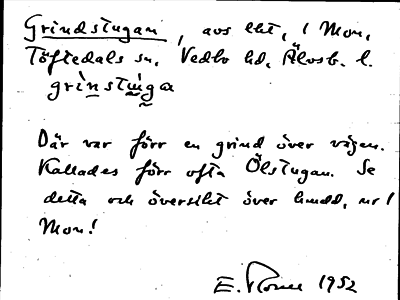 Grindstugan, avs. lht, i Mon,
Töftedals sn, Vedbo hd, Älvsb. l.
grinstuga
Där var förr en grind över vägen.
Kallades förr ofta Ölstugan. Se
detta och översikt över hmdd, nr 1
Mon!
E. 1952